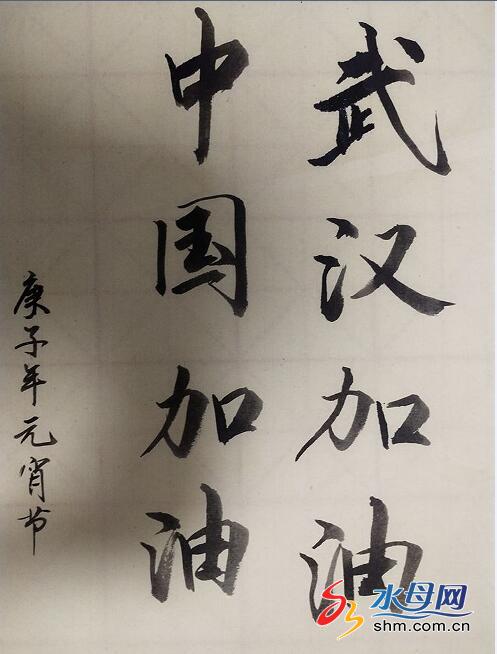 武汉加油
中国加油
庚子年元宵节
水母网
shm.com.cn